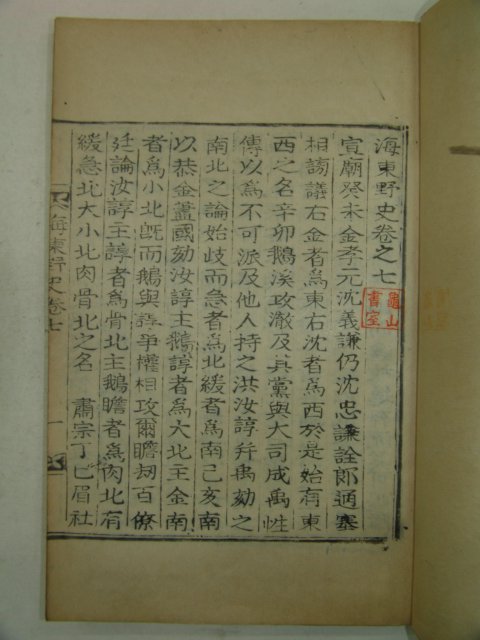 海東野史卷之七
宣廟癸未金孝元沈義謙仍沈忠謙詮郎通塞
相謗議右金者爲東右沈者爲西於是始有東
西之名辛卯鵝溪攻澈及其黨與大司成禹性
傳以爲不可派及他人持之洪汝諄幷禹劾之
南北之論始歧而急者爲北緩者爲南己亥南
以恭金藎國劾汝諄主鵝諄者爲大北主金南
者爲小北旣而鵝與諄爭權相攻爾瞻劫百僚
廷論汝諄主諄者爲骨北主鵝瞻者爲肉北有
緩急北大小北肉骨北之名 肅宗丁巳眉社
海東野史卷七
一
龜山書室